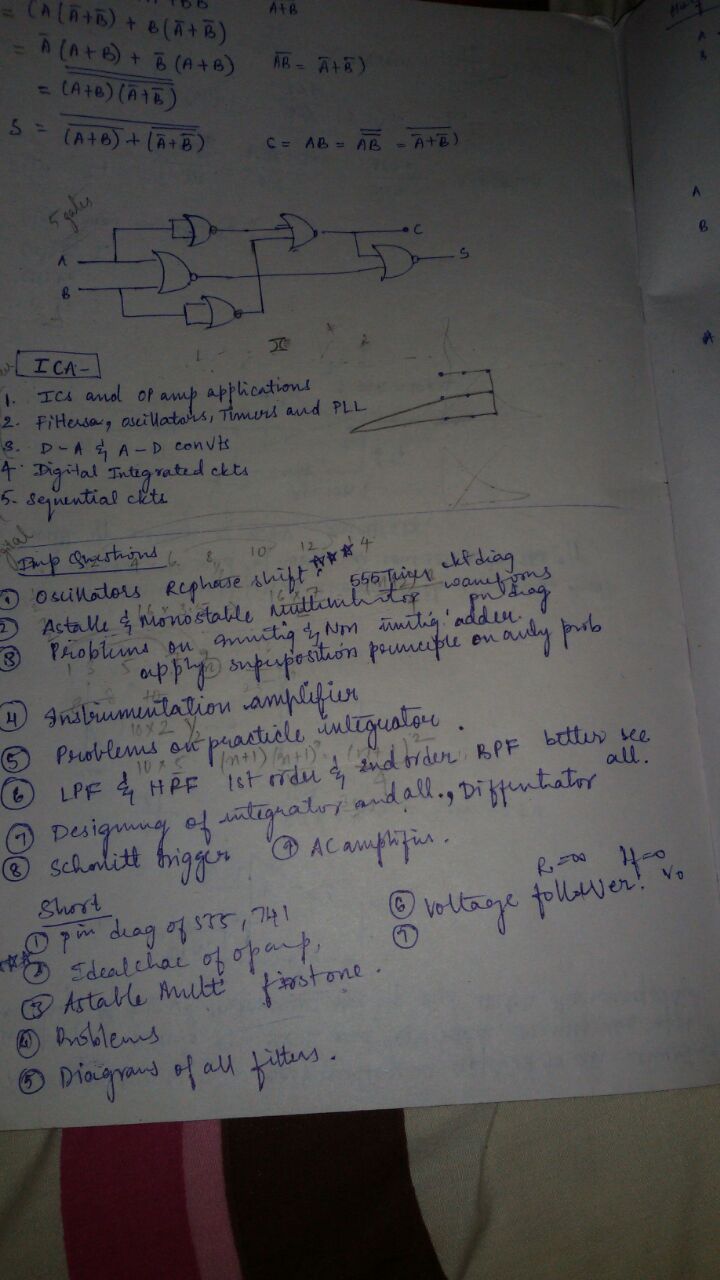 = (A(A̅+B̅) + B(A̅+B̅)
A+B
= A̅(A+B) + B̅(A+B)
A̅B̅ = A̅+B̅)
= (A+B)(A̅+B̅)
S = (A+B)+(A̅+B̅)
C = AB = AB = A̅+B̅)
5 gates
A
B
C
S
ICA-
1. ICs and OP amp applications
2. Filtersa, oscillators, Timers and PLL
3. D-A & A-D convts
4. Digital Integrated ckts
5. Sequential ckts
Imp Questions
① Oscillators RC phase shift. ***
② Astable & monostable Multivibrator 555 Timer ckt diag waveforms pn diag
③ Problems on & Non adder.
apply superposition principle on only prob
④ Instrumentation amplifier
⑤ Problems on practicle integrator.
⑥ LPF & HPF 1st order & 2nd order BPF better see all.
⑦ Designing of integrator and all., Diffentiator
⑧ Schmitt trigger ⑨ AC amplifies.
Short
① pin diag of 555, 741
② Ideal chac of opamp,
③ Astable Multi first one.
④ Problems
⑤ Diagrams of all filters.
⑥ Voltage follower.
⑦